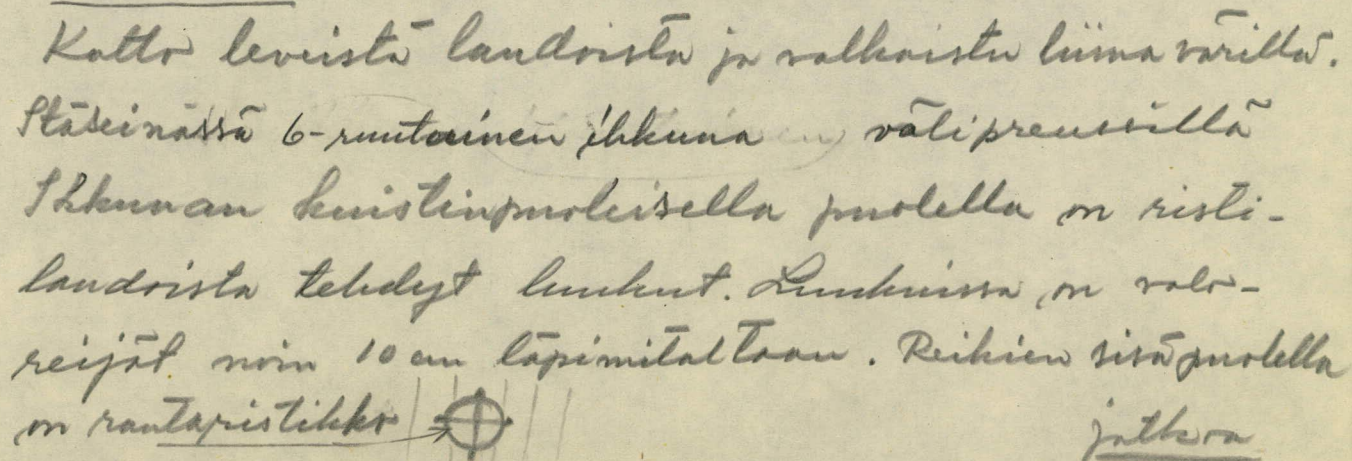 Katto leveistä laudoista ja valkaistu liima värillä.
Itäseinässä 6-ruutuinen ikkuna välipreussillä
Ikkunan kuistinpuoleisella puolella on risti-
laudoista tehdyt luukut. Luukuissa on valo-
reijät noin 10 cm läpimitaltaan. Reikien sisäpuolella
on rautaristikko jatkoa